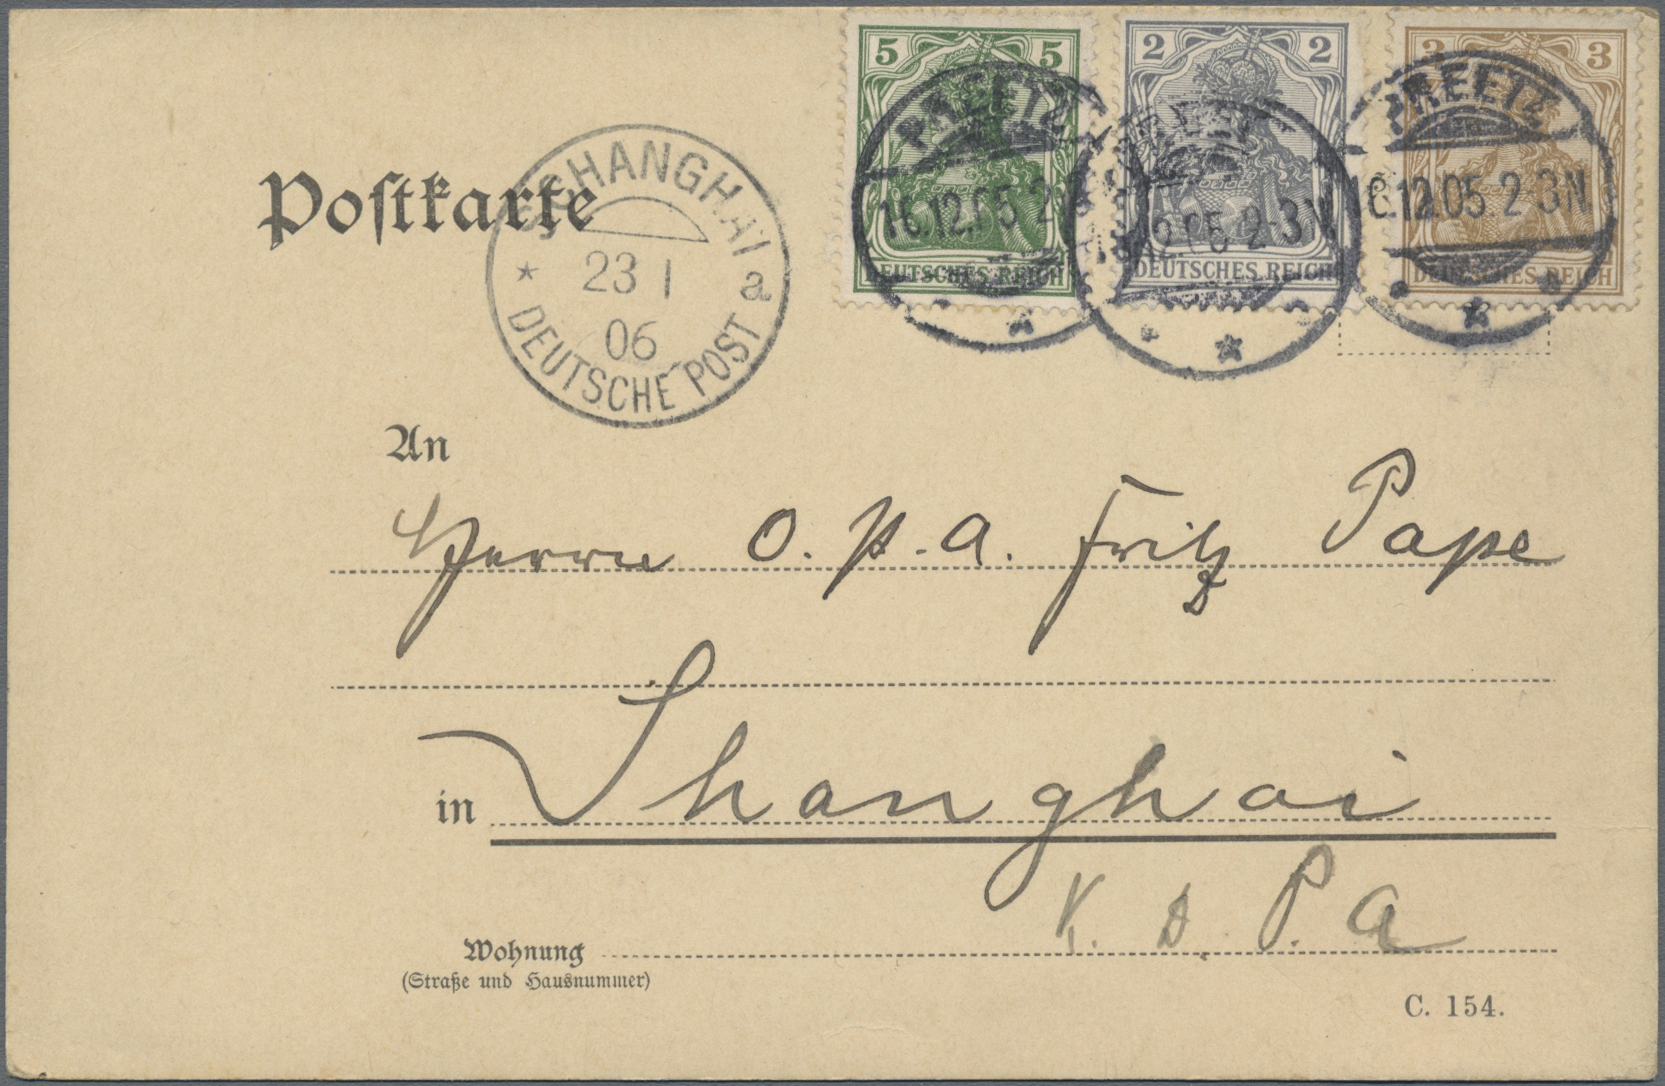 5 5
2 2
3 3
DEUTSCHES REICH
DEUTSCHES REICH
DEUTSCHES REICH
PREETZ
16.12.05. 2
PREETZ
12.05. 2-3N
PREETZ
16.12.05. 2-3N
Postkarte
SHANGHAI
23 1
06
a
DEUTSCHE POST
An
Herrn O. P. A. Fritz Pape
in Shanghai
K. D. P. A
Wohnung
(Straße und Hausnummer)
C. 154.